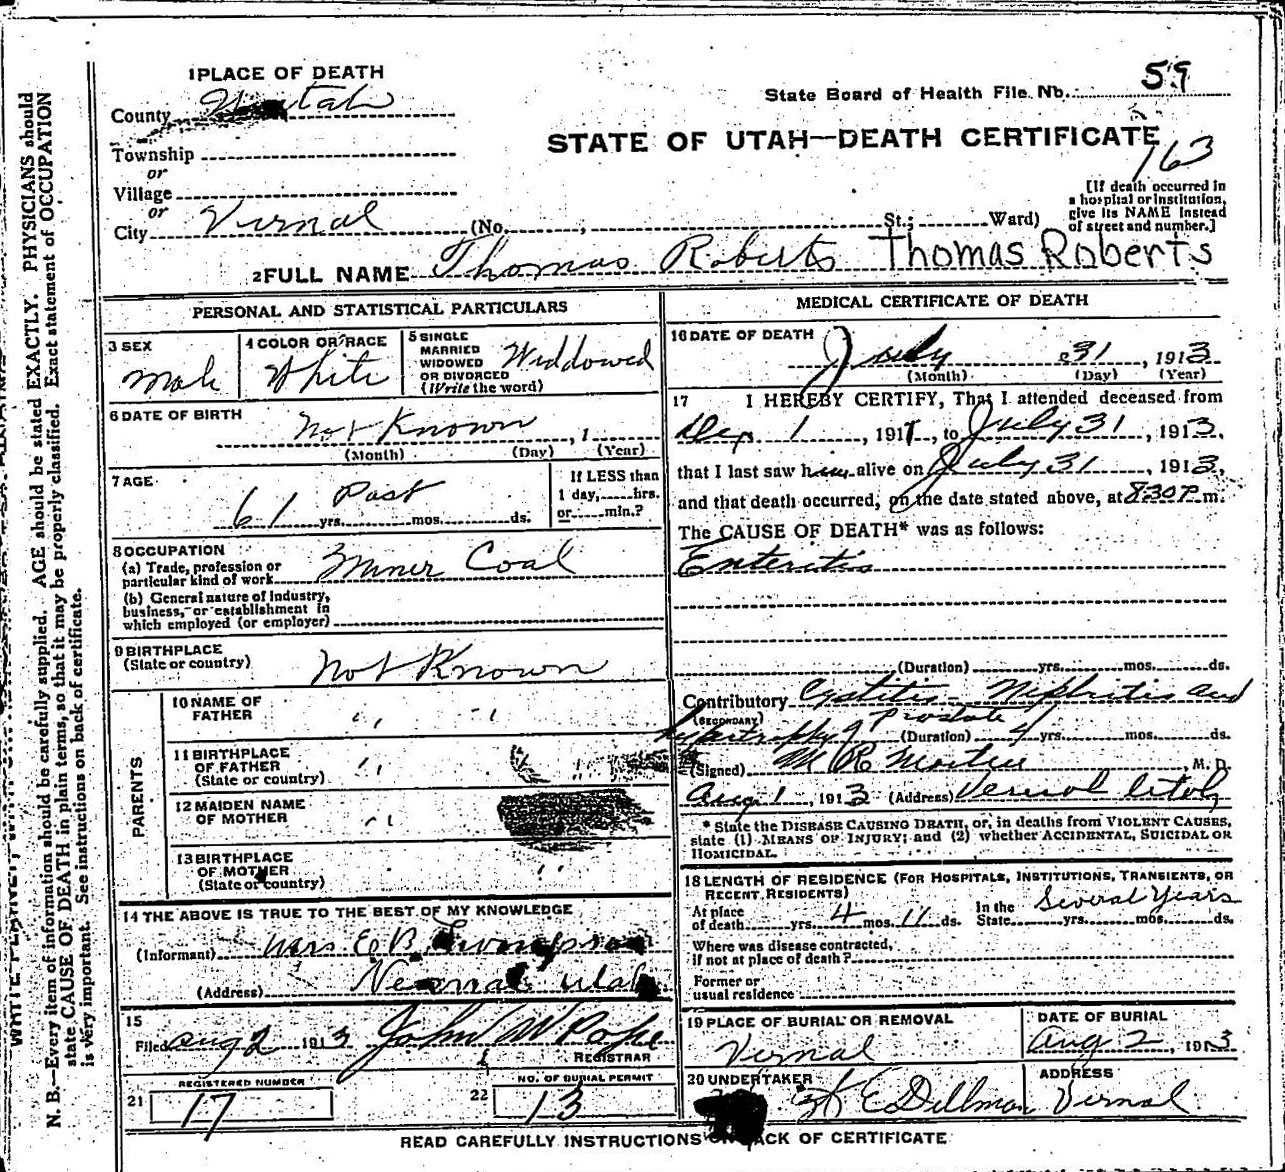 1 PLACE OF DEATH
County
Township
or
Village
or
City Vernal (No. , St.; Ward)
State Board of Health File No. 59
STATE OF UTAH—DEATH CERTIFICATE
163
[If death occurred in
a hospital or institution,
give its NAME instead
of street and number.]
2 FULL NAME Thomas Roberts Thomas Roberts
PERSONAL AND STATISTICAL PARTICULARS
3 SEX
Male
4 COLOR OR RACE
White
5 SINGLE
MARRIED
WIDOWED
OR DIVORCED
(Write the word)
Widdowed
6 DATE OF BIRTH
Not Known , 1
(Month) (Day) (Year)
7 AGE
61 Past yrs. mos. ds.
If LESS than
1 day, hrs.
or min.?
8 OCCUPATION
(a) Trade, profession or
particular kind of work Miner Coal
(b) General nature of industry,
business, or establishment in
which employed (or employer)
9 BIRTHPLACE
(State or country)
Not Known
PARENTS
10 NAME OF
FATHER " "
11 BIRTHPLACE
OF FATHER
(State or country) " "
12 MAIDEN NAME
OF MOTHER "
13 BIRTHPLACE
OF MOTHER
(State or country) "
14 THE ABOVE IS TRUE TO THE BEST OF MY KNOWLEDGE
(Informant) Mrs E B Thompson
(Address) Vernal Utah
15
Filed Aug 2 1913 John W Pope
REGISTRAR
REGISTERED NUMBER
21 17
NO. OF BURIAL PERMIT
22 13
MEDICAL CERTIFICATE OF DEATH
16 DATE OF DEATH
July 31 , 1913
(Month) (Day) (Year)
17 I HEREBY CERTIFY, That I attended deceased from
1 , 191 , to July 31 , 1913,
that I last saw him alive on July 31 , 1913,
and that death occurred, on the date stated above, at 830 P m.
The CAUSE OF DEATH* was as follows:
Enteritis
(Duration) yrs. mos. ds.
Contributory Cystitis - Nephritis and
(SECONDARY)
hypertrophy of Prostate (Duration) 4 yrs. mos. ds.
(Signed) M R , M. D.
Aug 1 , 1913 (Address) Vernal Utah
* State the DISEASE CAUSING DEATH, or, in deaths from VIOLENT CAUSES,
state (1) MEANS OF INJURY; and (2) whether ACCIDENTAL, SUICIDAL OR
HOMICIDAL.
18 LENGTH OF RESIDENCE (FOR HOSPITALS, INSTITUTIONS, TRANSIENTS, OR
RECENT RESIDENTS)
At place
of death yrs. 4 mos. 11 ds.
In the
State Several Years yrs. mos. ds.
Where was disease contracted,
if not at place of death?
Former or
usual residence
19 PLACE OF BURIAL OR REMOVAL
Vernal
DATE OF BURIAL
Aug 2 , 1913
20 UNDERTAKER
E Dillman
ADDRESS
Vernal
READ CAREFULLY INSTRUCTIONS BACK OF CERTIFICATE
N. B.—Every item of information should be carefully supplied. AGE should be stated EXACTLY. PHYSICIANS should
state CAUSE OF DEATH in plain terms, so that it may be properly classified. Exact statement of OCCUPATION
is very important. See instructions on back of certificate.